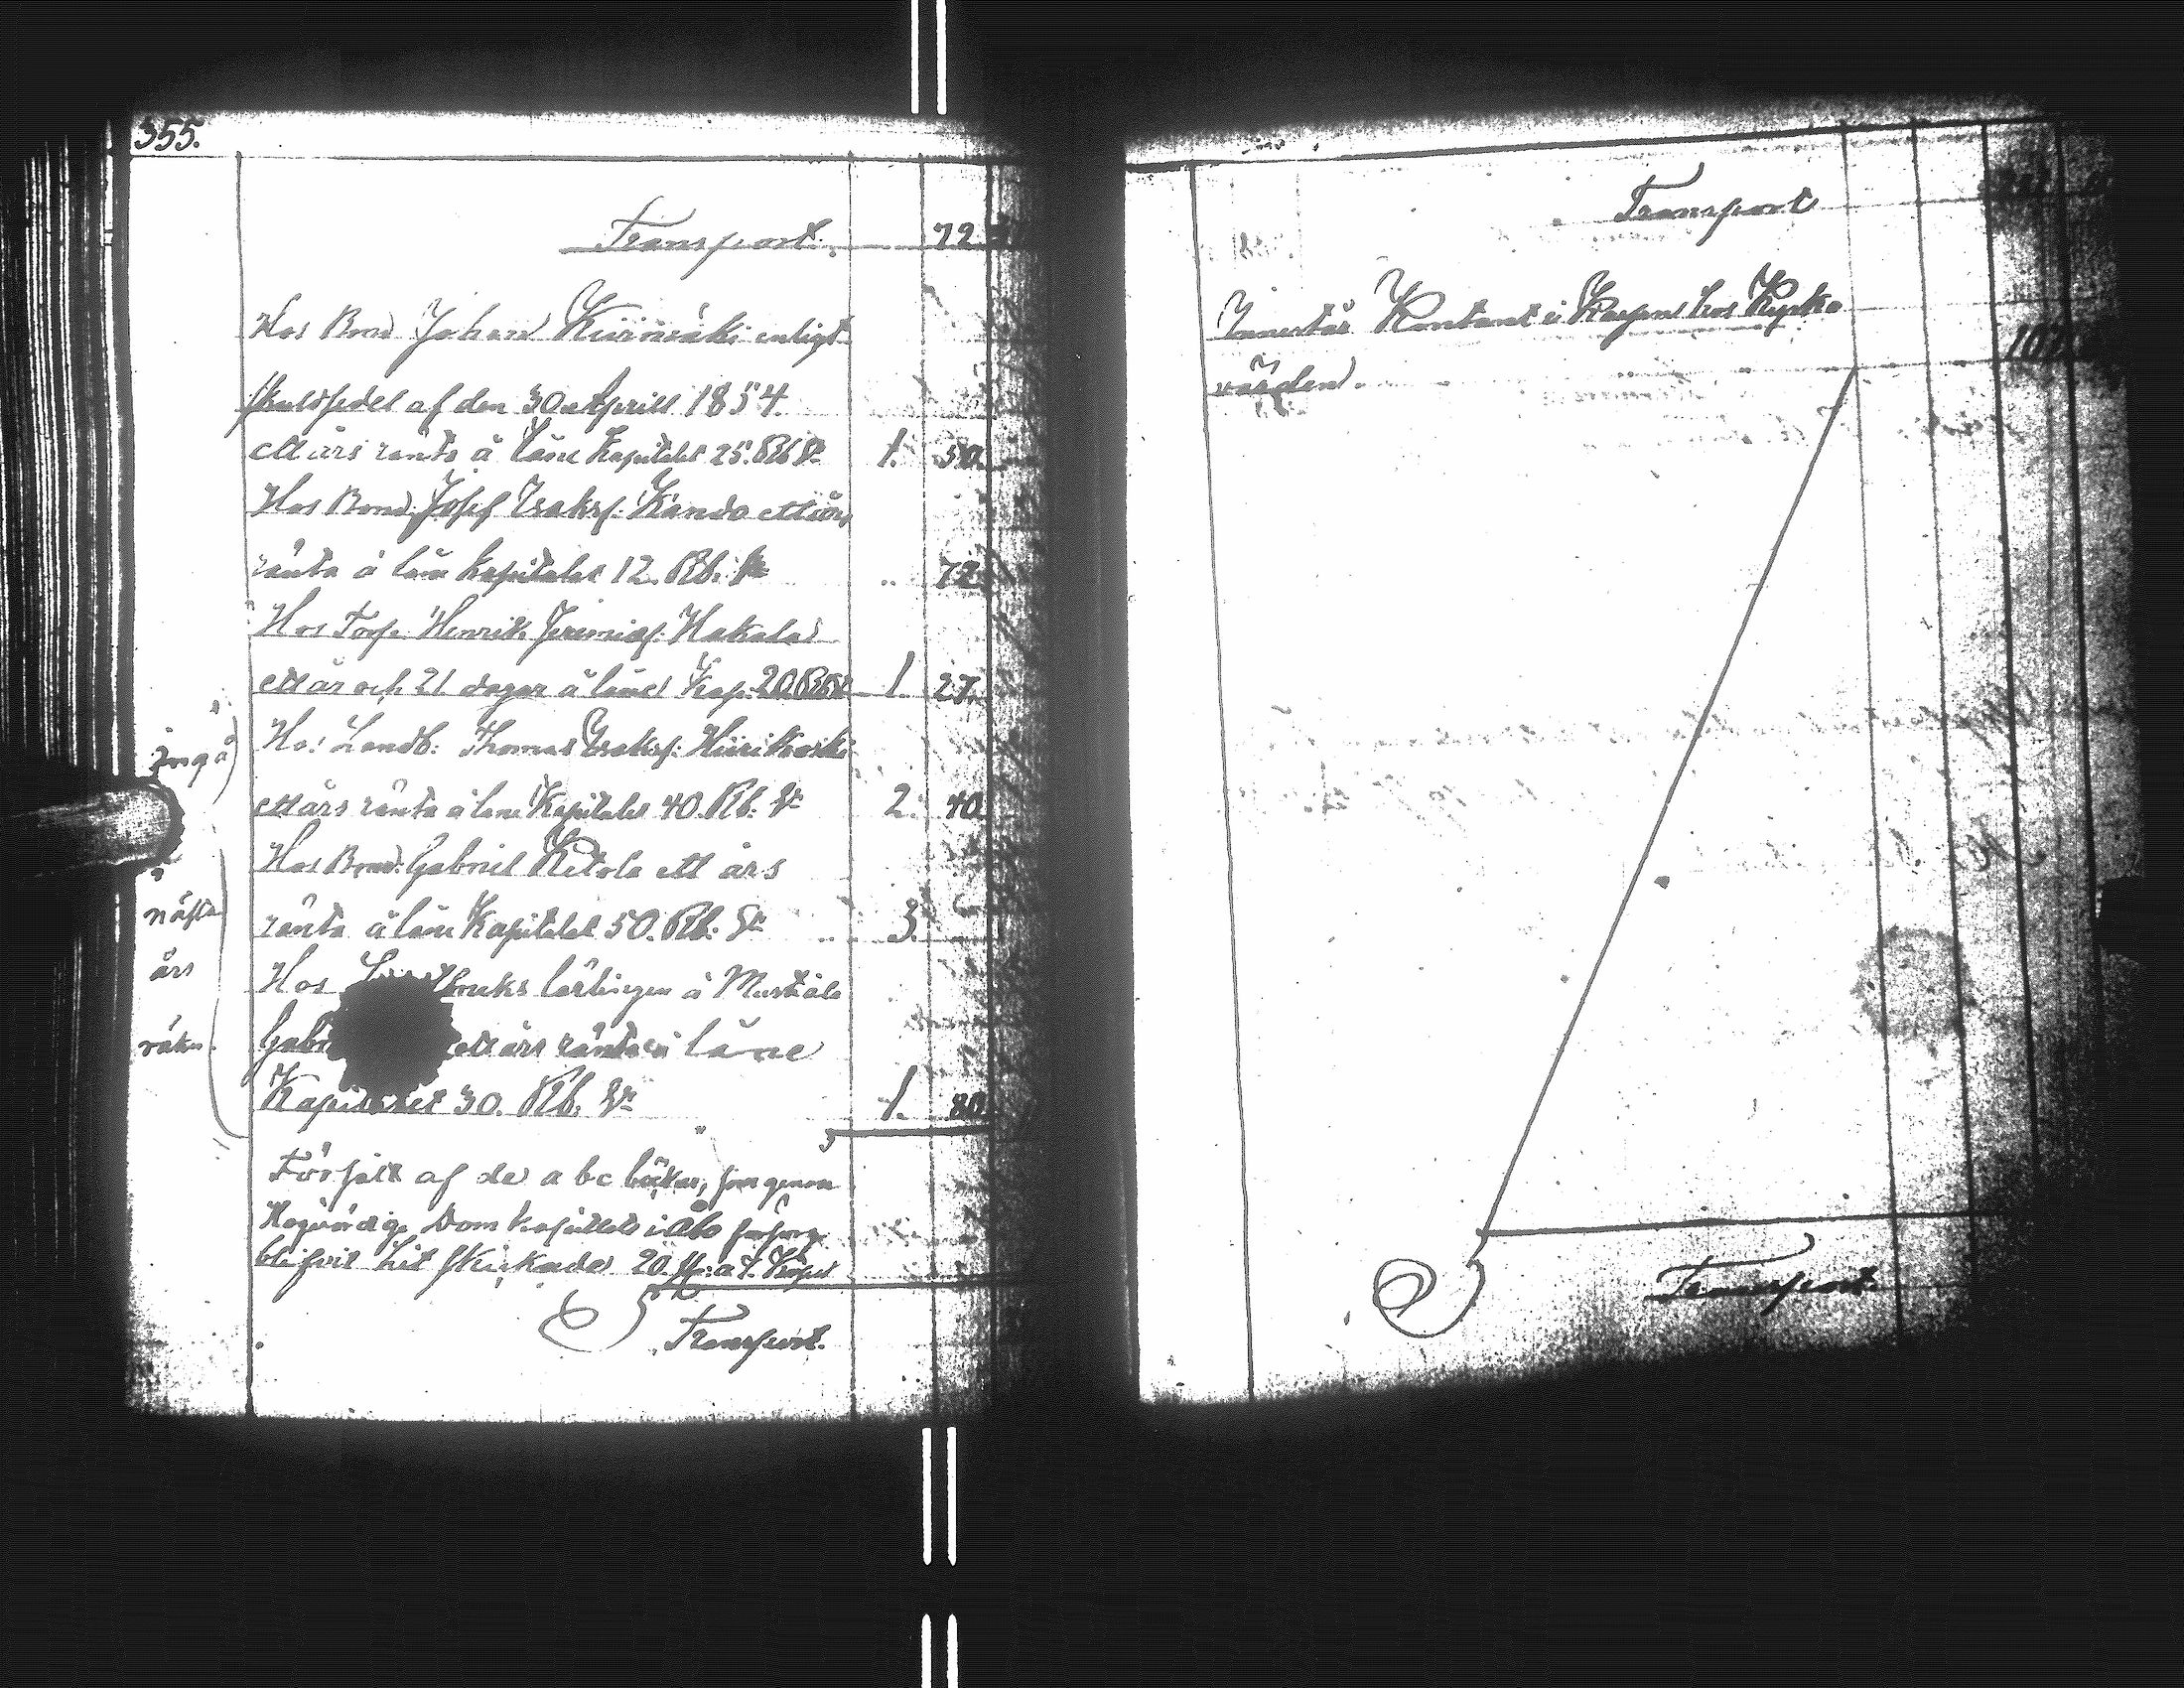 355.
Transport. 72
Hos Bond. Johan Kiirimäki enligt
skuldsedel af den 30 Aprill 1854.
ett års ränta å låne Kapitalet 25. Rb Sr 1. 50.
Hos Bond. Josef Isaksf. Kando ett års
ränta å låne kapitalet 12. Rb. Sr .. 72
Hos Torp. Henrik Jeremiaf. Hakala
ett år och 21 dagar å låne Kap. 20 Rb Sr 1. 27.
Hos Landb. Thomas Isaksf. Hiirikoski
ett års ränta å låne Kapitalet 40. Rb. Sr 2. 40
Hos Bond. Gabriel Ketola ett års
ränta å låne Kapitalet 50. Rb. Sr .. 3.
Hos lärlingen å Mustiala
Gabr ett års ränta å låne
Kapitalet 30. Rb. Sr 1. 80
ingå
nästa
års
räkn.
Försålt af de a b c böcker, som genom
Högvördige Domkapitlets i Åbo försorg
blifvit hit skickade 20 st. a 7. Kopek
Transport.
Transport
Innestår Kontant i Kassan hos Kyrko
värden.
Transport.